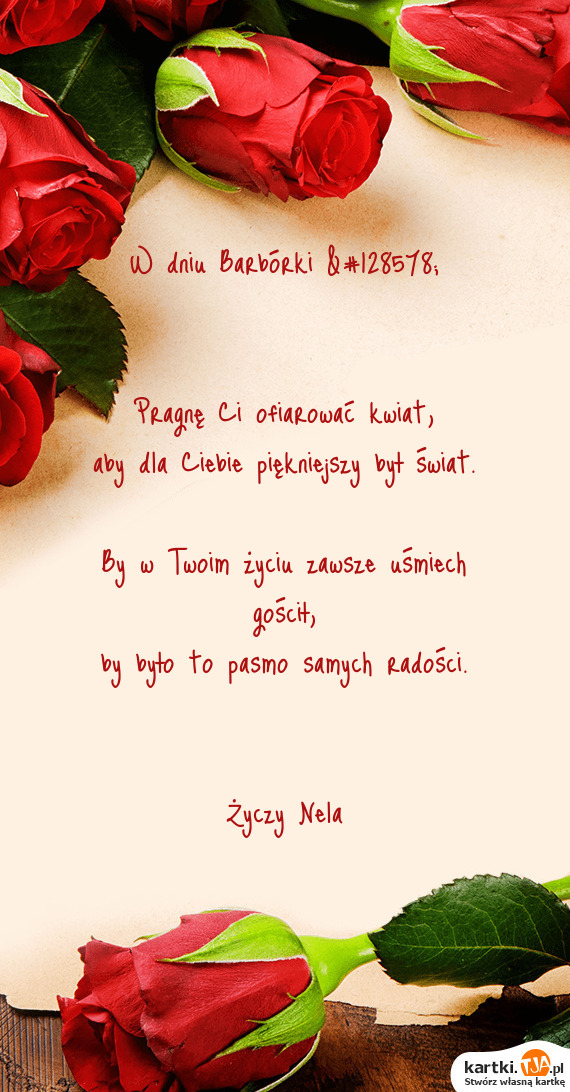 W dniu Barbórki &#128578;
Pragnę Ci ofiarować kwiat,
aby dla Ciebie piękniejszy był świat.
By w Twoim życiu zawsze uśmiech
gościł,
by było to pasmo samych radości.
Życzy Nela
kartki.TJA.pl
Stwórz własną kartkę